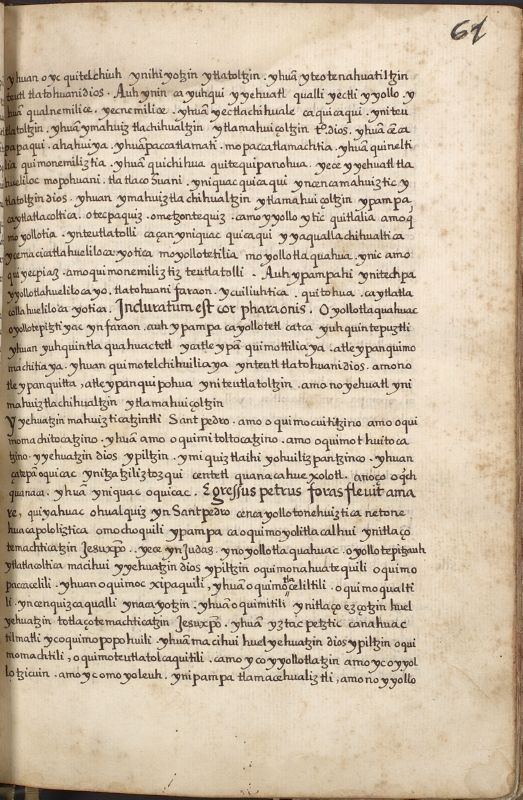 61
yhuan oyc quitelchiuh ynihiyotzin ytlatoltzin . yhuã yteotenahuatiltzin
teutl tlatohuani dios . Auh ynin ca yuhqui yyehuatl qualli yectli yyollo . y
huã qualnemilice . yecnemilice . yhuã yectlachihuale caquicaqui . yniteu
tlatoltzin . yhuã ymahuiz tlachihualtzin ytlamahuiçoltzin tº. dios . yhuã
papaqui . ahahuiya . yhuã paccatlamati . mopaccatlamachtia . yhuã quinelti
lia quimonemiliztia . yhuã quichihua quitequipanohua . yece yyehuatl tla
hueliloc mopohuani . tlatlacohuani . yniquac quicaqui yncenca mahuiztic y
tlatoltzin dios . yhuan ymahuiztlachihualtzin ytlamahuiçoltzin ypampa
ca ytlatlacoltica . otecpaquiz . ometzontequiz . camo yyollo ytic quitlalia amo q
moyollotia . ynteutlatolli caçan yniquac quicaqui yyaqualla chihualtica
ycemacicatlahueliloca . yotica moyollotetilia moyollotlaquahua . ynic amo
quiyecpiaz . amo quimonemiliztiz teutlatolli . Auh ypampahi ynitechpa
yyollotlahuelilocayo . tlatohuani faraon . ycuiliuhtica . quitohua . ca ytlatla
colla huelilocayotica . Induratum est cor pharaonis . Oyollotlaquahuac
oyollotepitztiyac yn faraon . auh ypampa ca yollotetl catca yuhquin tepuztli
yhuan yuhquin tlaquahuac tetl yatle ypã quimottiliaya . atle ypan quimo
machitiaya . yhuan quimotelchihuiliaya ynteutl tlatohuani dios . amo no
tle ypanquitta , atle ypan quipohua yniteutlatoltzin . amo no yehuatl yni
mahuiztlachihualtzin ytlamahuiçoltzin
Yyehuatzin mahuizticatzintli Sant pedro . amo oquimocuititzino amo oqui
momachitocatzino . yhuã amo oquimitoltocatzino . amo oquimothuitoca
tzino . yyehuatzin dios ypiltzin . ymiquiztlaihiyohuiliz pantzinco . yhuan
çatepã oquicac ynitzatziliz tozqui centetl quanacahuexolotl . anoço oqch
quanaca . yhuã yniquac oquicac . Egressus petrus foras fleuit ama
re , quiyahuac ohualquiz yn Sant pedro cenca yollotonehuiztica netone
huacapololiztica omochoquili ypampa ca oquimoyolitlacalhui ynitlaço
temachticatzin Jesuxpo . yece yn Judas . ynoyollotlaquahuac . oyollotepitzauh
ytlatlacoltica macihui yyehuatzin dios ypiltzin oquimonahuatequili oquimo
paccacelili . yhuan oquimocxipaquili , yhuã oquimotlaçeliltili . oquimoqualti
li . yncenquizcaqualli ynacayotzin . yhuã oquimitili ynitlaço ezçotzin huel
yehuatzin totlaçotemachticatzin Jesuxpo . yhuã yztac petztic canahuac
tilmatli yc oquimopopohuili . yhuã macihui huel yehuatzin dios ypiltzin oqui
momachtili , oquimoteutlatolcaquitili . camo yc oyyollotlatzin amo yc oyyol
lotzicuin . amo yc omoyoleuh . ynipampa tlamacehualiztli , amo no yyollo